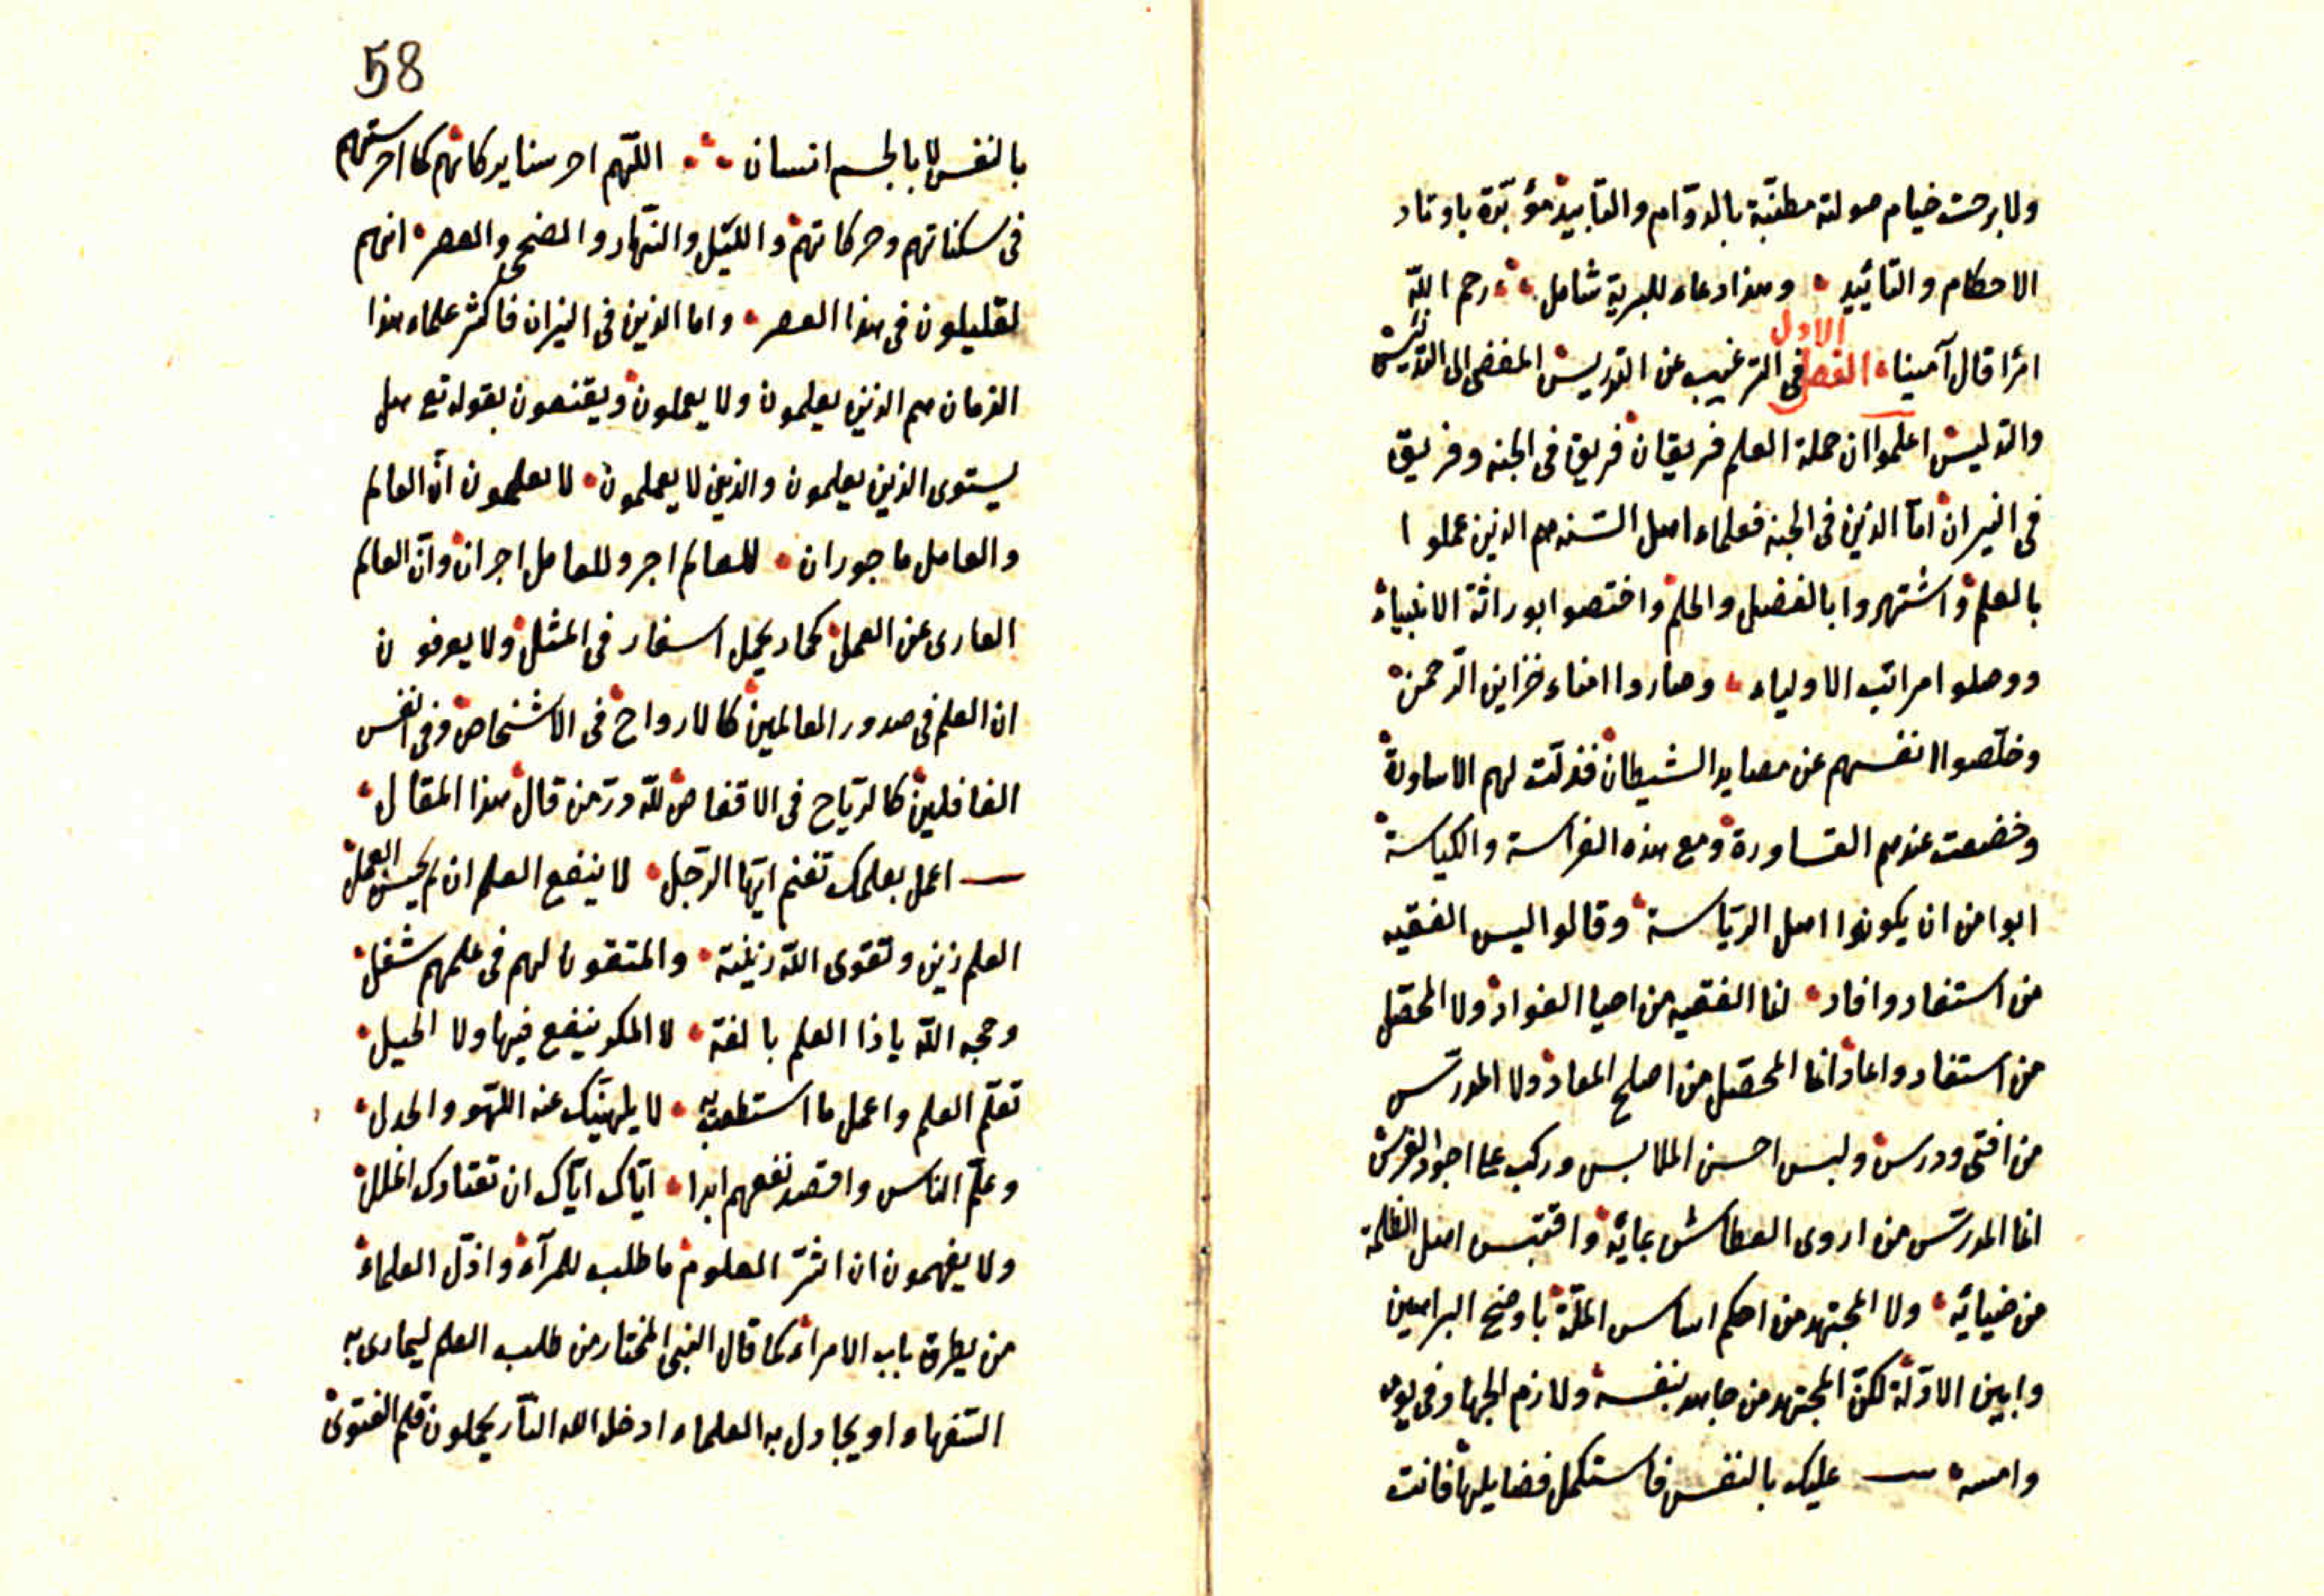 ولا برحت خيام صولته مطنّبة بالدوّام والتّأبيد مؤبّدة باوتاد
الاحكام والتأييد وهذا دعاء للبرية شامل رحم اللّه
امرأ قال آمينا الفصل الاول فى الترغيب عن التدريس المفضى الى التدنيس
والتدليس اعلموا ان حملة العلم فريقان فريق فى الجنه وفريق
فى النيران امّا الذين فى الجنه فعلماء اهل السّنه هم الذين عملوا
بالعلم واشتهروا بالفضل والحلم واختصوا بوراثة الانبياء
ووصلوا مراتب الاولياء وصاروا امناء خزاين الرّحمن
وخلّصوا انفسهم عن مصايد الشيطان فذلّت لهم الاساودة
وخضعت عندهم القساورة ومع هذه الفراسة والكياسة
ابوا من ان يكونوا اهل الرّياسة وقالوا ليس الفقيه
من استفاد وافاد انما الفقيه من احيا الفواد ولا المحصّل
من استفاد واعاد انما المحصّل من اصلح المعاد ولا المدرّس
من افتى ودرس ولبس احسن الملابس وركب على اجواد الفرس
انما المدرّس من اروى العطاش بمائه واقتبس اهل الظلمة
من ضيائه ولا المجتهد من احكم اساس الملّة باوضح البراهين
وابين الادلّة لكنّ المجتهد من جاهد بنفسه ولازم الجهاد فى يومه
وامسه عليك بالنفس فاستكمل فضايلها فانت
58
بالنفس لا بالجسم انسان اللّهم احرسنا ببركاتهم كما احرستهم
فى سكناتهم وحركاتهم والليّل والنّهار والضحى والعصر انهم
لقليلون فى هذا العصر واما الذين فى النيران فاكثر علماء هذا
الزمان هم الذين يعلمون ولا يعملون ويقنعون بقوله تع هل
يستوى الذين يعلمون والذين لا يعلمون لا يعلمون انّ العالم
والعامل ماجوران للعالم اجر وللعامل اجران وانّ العالم
العارى عن العمل كحمار يحمل اسفار فى المثل ولا يعرفون
ان العلم فى صدور العالمين كالارواح فى الاشخاص وفى انفس
الغافلين كالرّياح فى الاقفاص للّه درّ من قال هذا المقال
اعمل بعلمك تغنم ايّها الرّجل لا ينفع العلم ان لم يحسن العمل
العلم زين وتقوى اللّه زينته والمتقون لهم فى علمهم شغل
وحجه اللّه ياذا العلم بالغة لا المكر ينفع فيها ولا الحيل
تعلّم العلم واعمل ما استطعت به لا يلهينّك عنه اللّهو والجدل
وعلّم الناس واقصد نفعهم ابدا ايّاك ايّاك ان تعتادك الملل
ولا يفهمون ان اشرّ العلوم ما طلب للمرآء واذلّ العلماء
من يطرق باب الامراء كما قال النبى المختار من طلب العلم ليمارى به
السّفهاء او يجادل به العلماء ادخل الله النّار يحملون قلم الفتوى